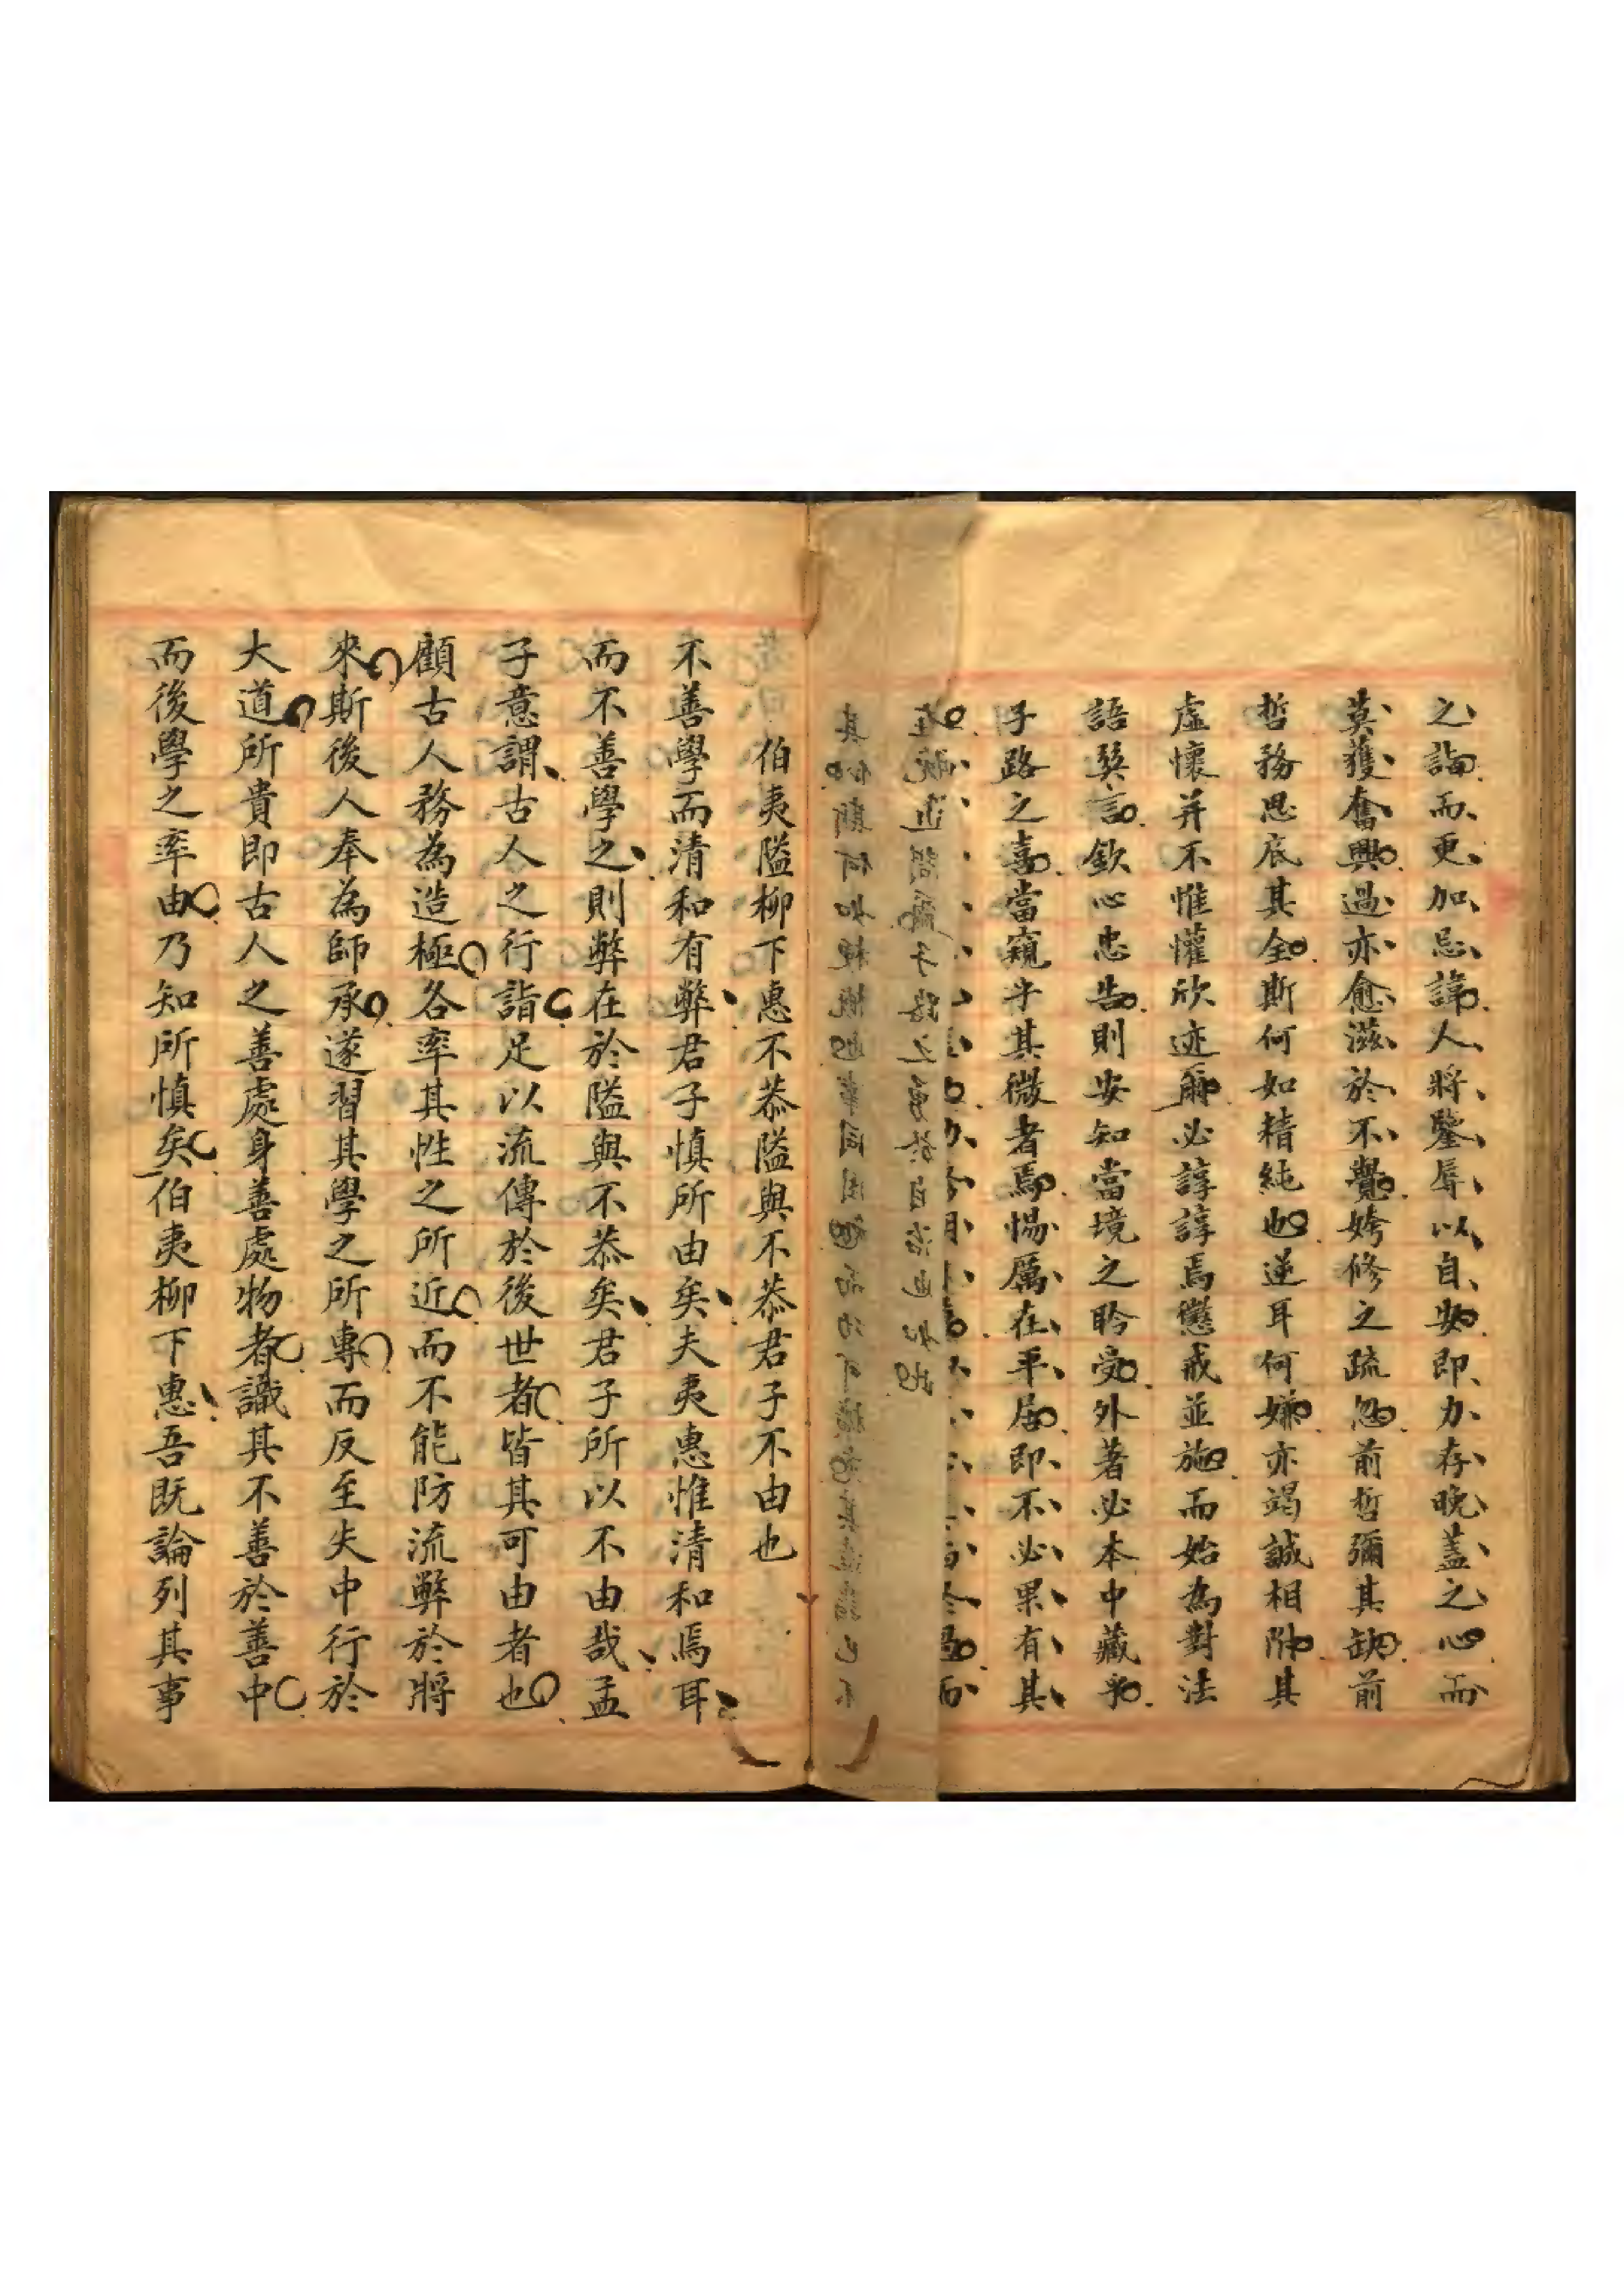 之誨而更加忌諱人將鑒辱以自安即力存晚蓋之心而
莫獲奮興過亦愈滋於不覺姱修之疏忽前哲彌其缺前
哲務思底其全斯何如精純也逆耳何嫌亦竭誠相附其
虛懷并不惟懽欣迹爾必諄諄焉懲戒並施而始為對法
語巽言欽心忠告則安知當境之聆受外著必本中藏乎
子路之喜當窺乎其微者焉惕厲在平居即不必果有其
伯夷隘柳下惠不恭隘與不恭君子不由也
不善學而清和有弊君子慎所由矣夫夷惠惟清和焉耳
而不善學之則弊在於隘與不恭矣君子所以不由哉孟
子意謂古人之行詣足以流傳於後世者皆其可由者也
顧古人務為造極各率其性之所近而不能防流弊於將
來斯後人奉為師承遂習其學之所專而反至失中行於
大道所貴即古人之善處身善處物者識其不善於善中
而後學之率由乃知所慎矣伯夷柳下惠吾既論列其事